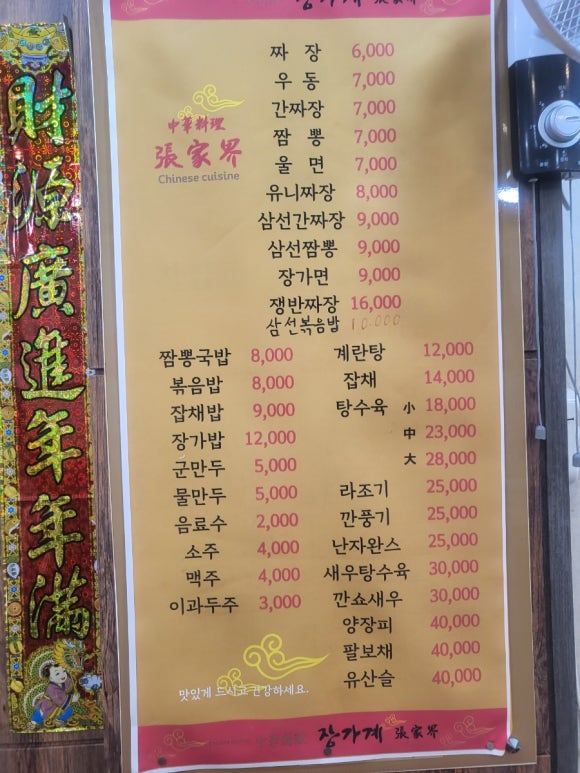 장가계 張家界
中華料理
張家界
Chinese cuisine
짜 장 6,000
우 동 7,000
간짜장 7,000
짬 뽕 7,000
울 면 7,000
유니짜장 8,000
삼선간짜장 9,000
삼선짬뽕 9,000
장가면 9,000
쟁반짜장 16,000
삼선볶음밥 10.000
짬뽕국밥 8,000
볶음밥 8,000
잡채밥 9,000
장가밥 12,000
군만두 5,000
물만두 5,000
음료수 2,000
소주 4,000
맥주 4,000
이과두주 3,000
계란탕 12,000
잡채 14,000
탕수육 小 18,000
中 23,000
大 28,000
라조기 25,000
깐풍기 25,000
난자완스 25,000
새우탕수육 30,000
깐쇼새우 30,000
양장피 40,000
팔보채 40,000
유산슬 40,000
맛있게 드시고 건강하세요.
장가계 張家界
財源廣進年年滿